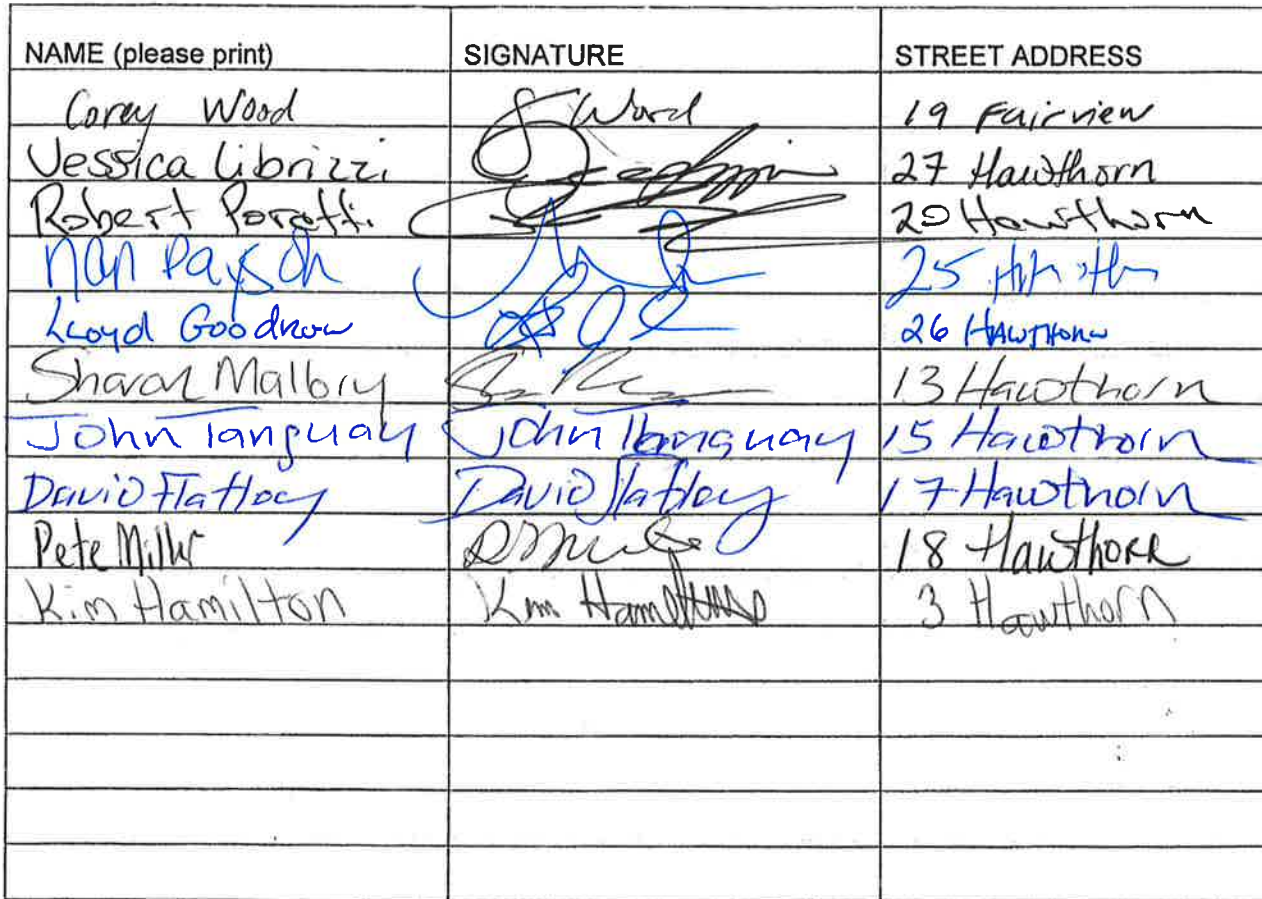 NAME (please print) SIGNATURE STREET ADDRESS
Corey Wood Wood 19 Fairview
Jessica Librizzi 27 Hawthorn
Robert Poretti 20 Hawthorn
Nan Payson 25
Lloyd Goodrow 26 Hawthorn
Sharon Mallory 13 Hawthorn
John Tanguay John Tanguay 15 Hawthorn
David Flatley David Flatley 17 Hawthorn
Pete Miller 18 Hawthorn
Kim Hamilton Kim Hamilton 3 Hawthorn